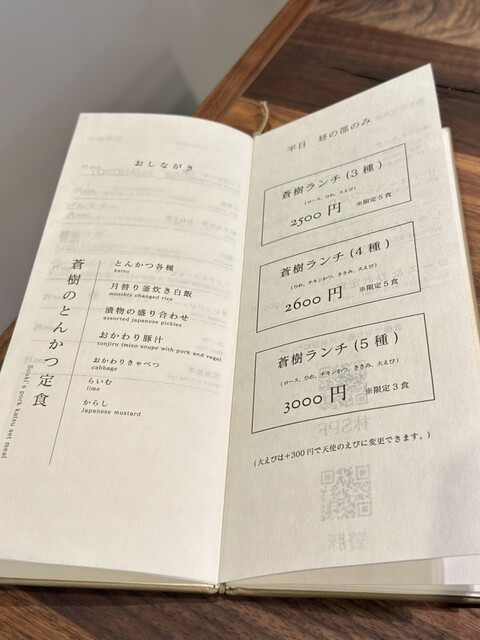 おしながき
蒼樹のとんかつ定食
Sōju's pork katsu set meal
とんかつ各種
katsu
月替り釜炊き白飯
monthly changed rice
漬物の盛り合わせ
assorted Japanese pickles
おかわり豚汁
tonjiru (miso soupe with pork and vege)
おかわりきゃべつ
cabbage
らいむ
lime
からし
Japanese mustard
平日 昼の部のみ
蒼樹ランチ(3種)
(ロース、ひれ、大えび)
2500円 ※限定5食
蒼樹ランチ(4種)
(ひれ、チキンかつ、ささみ、大えび)
2600円 ※限定5食
蒼樹ランチ(5種)
(ロース、ひれ、チキンかつ、ささみ、大えび)
3000円 ※限定3食
(大えびは+300円で天使のえびに変更できます。)